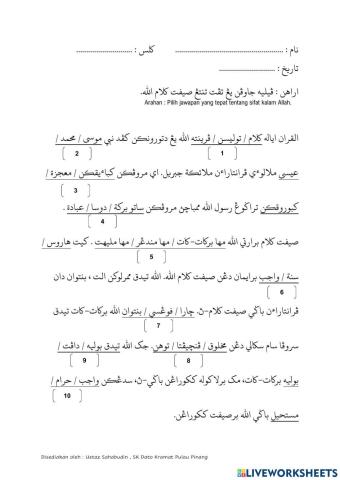 نام : ........................................................ کلس : ............................
تاريخ : ............................
اراهن : ڤيليه جاوڤن يڠ تڤت تنتڠ صيفت کلام الله.
Arahan : Pilih jawapan yang tepat tentang sifat kalam Allah.
القران اياله کلام / توليسن / ڤرينته الله يڠ دتورونکن کڤد نبي موسى / محمد /
[ 2 ] [ 1 ]
عيسى ملالوءي ڤرانتاراءن ملائکة جبريل. اي مروڤکن کباءيقکن / معجزة /
[ 3 ]
کبوروقکن تراݢوڠ رسول الله ممباچڽ مروڤکن ساتو برکة / دوسا / عبادة .
[ 4 ]
صيفت کلام برارتي الله مها برکات-کات / مها مندڠر / مها مليهت . کيت هاروس /
[ 5 ]
سنة / واجب برايمان دڠن صيفت کلام الله. الله تيدق ممرلوکن الت ، بنتوان دان
[ 6 ]
ڤرانتاراءن باݢي صيفت کلام-ڽ. چارا / فوڠسي / بنتوان الله برکات-کات تيدق
[ 7 ]
سروڤا سام سکالي دڠن مخلوق / ڤنچيڤتا / توهن. جک الله تيدق بوليه / داڤت /
[ 9 ] [ 8 ]
بوليه برکات-کات، مک برلاکوله ککوراڠن باݢي-ڽ، سدڠکن واجب / حرام /
[ 10 ]
مستحيل باݢي الله برصيفت ککوراڠن.
Disediakan oleh : Ustaz Sahabudin , SK Dato Kramat Pulau Pinang
LIVEWORKSHEETS